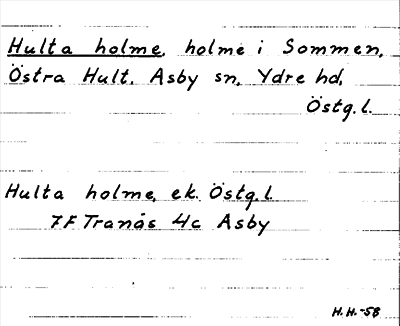 Hulta holme, holme i Sommen,
Östra Hult, Asby sn, Ydre hd,
Östg.l.
Hulta holme, ek. Östg.l.
7F Tranås 4c Asby
H.H.-58